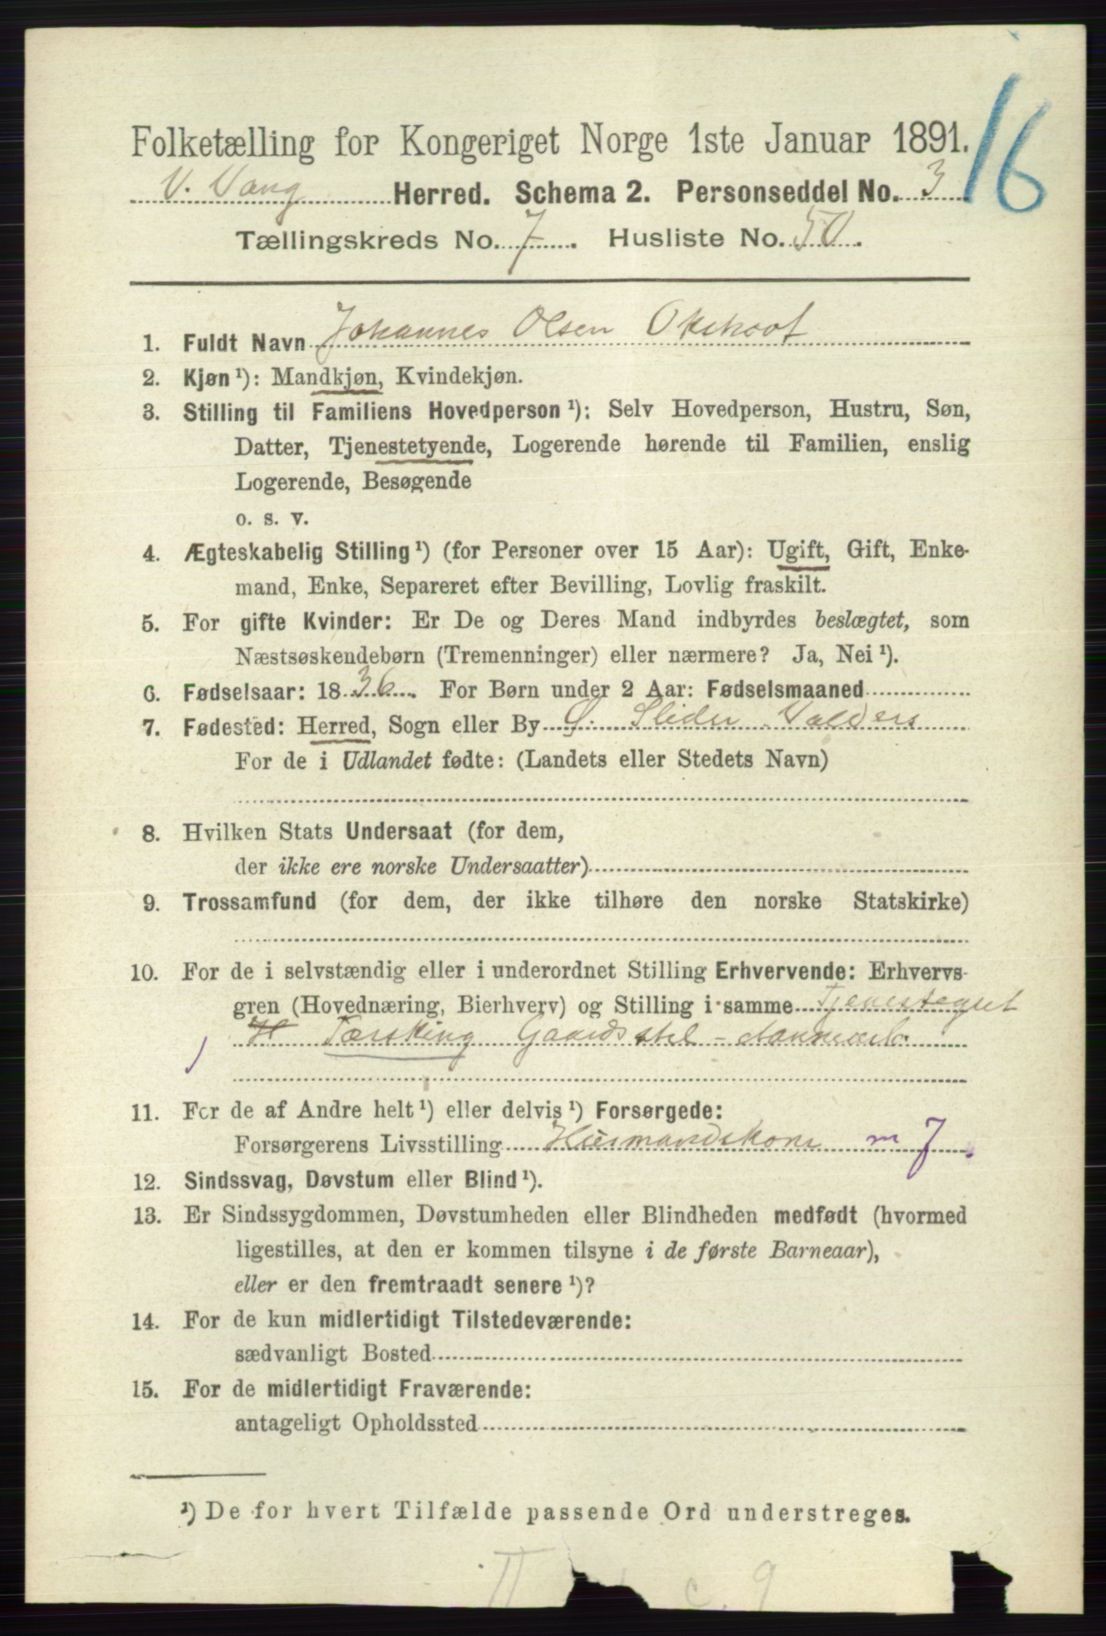 16
Folketælling for Kongeriget Norge 1ste Januar 1891.
V. Vang Herred. Schema 2. Personseddel No. 3
Tællingskreds No. 7. Husliste No. 50.
1. Fuldt Navn Johannes Olsen
2. Kjøn ¹): Mandkjøn, Kvindekjøn.
3. Stilling til Familiens Hovedperson ¹): Selv Hovedperson, Hustru, Søn,
Datter, Tjenestetyende, Logerende hørende til Familien, enslig
Logerende, Besøgende
o. s. v.
4. Ægteskabelig Stilling ¹) (for Personer over 15 Aar): Ugift, Gift, Enke-
mand, Enke, Separeret efter Bevilling, Lovlig fraskilt.
5. For gifte Kvinder: Er De og Deres Mand indbyrdes beslægtet, som
Næstsøskendebørn (Tremenninger) eller nærmere? Ja, Nei ¹).
6. Fødselsaar: 1836. For Børn under 2 Aar: Fødselsmaaned
7. Fødested: Herred, Sogn eller By Ø. Slidre Valders
For de i Udlandet fødte: (Landets eller Stedets Navn)
8. Hvilken Stats Undersaat (for dem,
der ikke ere norske Undersaatter)
9. Trossamfund (for dem, der ikke tilhøre den norske Statskirke)
10. For de i selvstændig eller i underordnet Stilling Erhvervende: Erhvervs-
gren (Hovednæring, Bierhverv) og Stilling i samme Tjenestegut
Tærsking Gaardsstel
11. For de af Andre helt ¹) eller delvis ¹) Forsørgede:
Forsørgerens Livsstilling Husmandskone m 7
12. Sindssvag, Døvstum eller Blind ¹).
13. Er Sindssygdommen, Døvstumheden eller Blindheden medfødt (hvormed
ligestilles, at den er kommen tilsyne i de første Barneaar),
eller er den fremtraadt senere ¹)?
14. For de kun midlertidigt Tilstedeværende:
sædvanligt Bosted
15. For de midlertidigt Fraværende:
antageligt Opholdssted
¹) De for hvert Tilfælde passende Ord understreges.